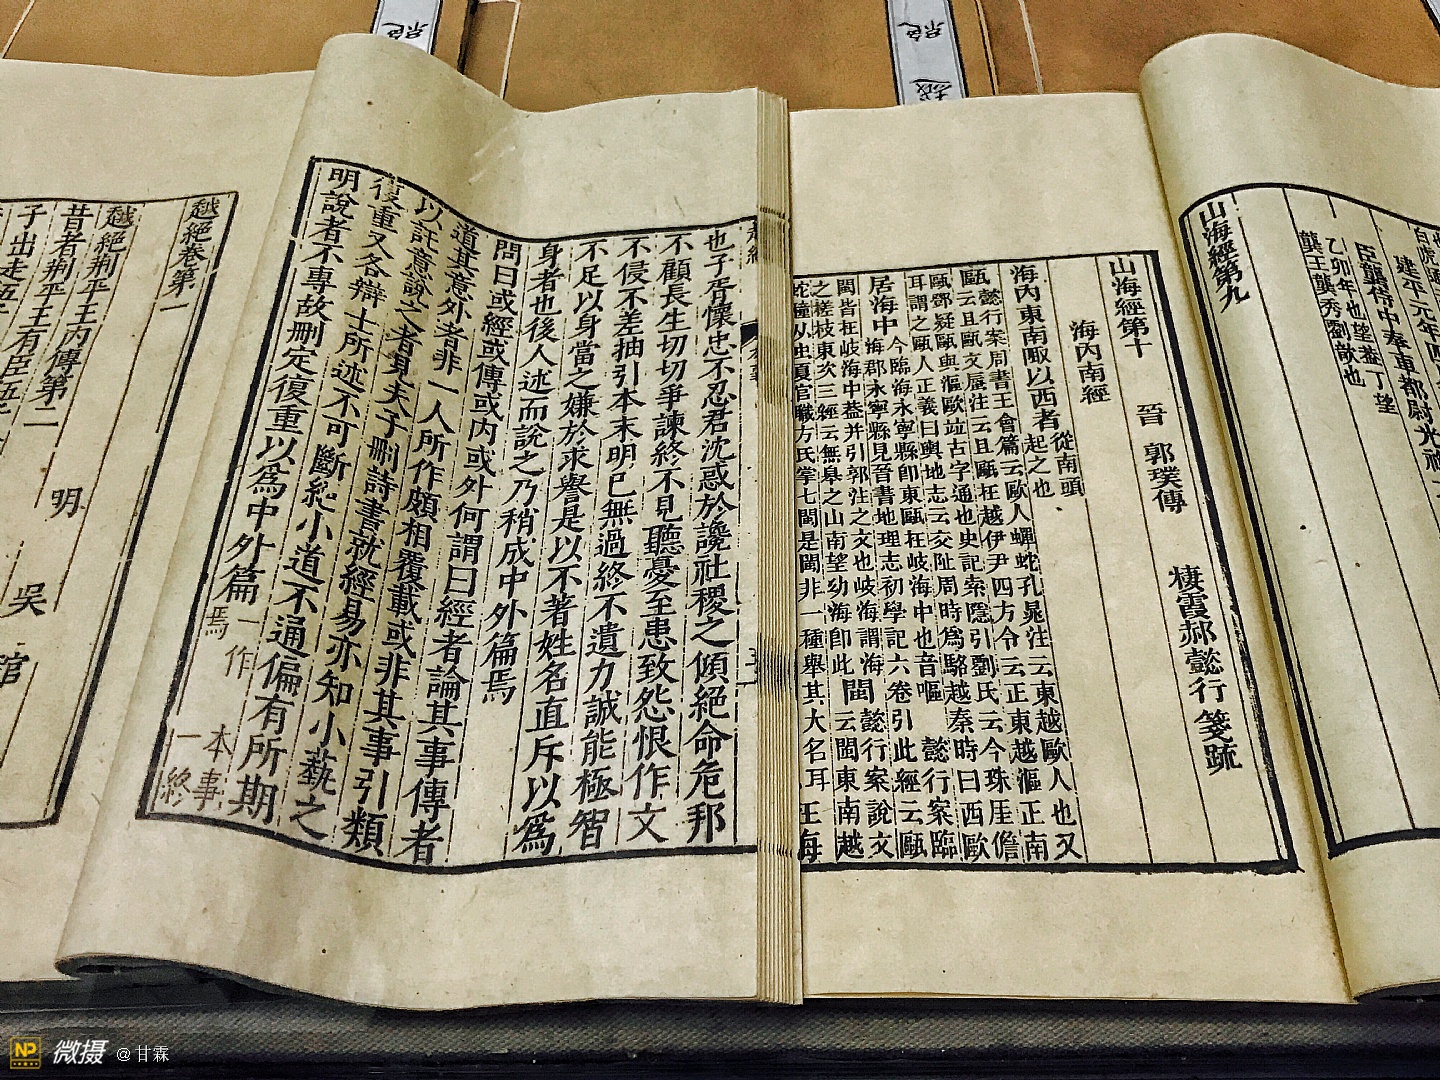 白虎通
建平元年四
臣龔侍中奉車都尉光祿
乙卯年也望葢丁望
龔王龔秀劉歆也
山海經第九
山海經第十
晉 郭璞傳
棲霞郝懿行箋疏
海內南經
海內東南陬以西者從南頭起之也
懿行案周書王會篇云歐人蟬蛇孔晁注云東越歐人也又
甌云且甌文蜃注云且甌在越伊尹四方令云正東越漚正南
甌鄧疑甌與漚歐竝古字通也史記索隱引劉氏云今珠厓儋
耳謂之甌人正義曰輿地志云交阯周時爲駱越秦時曰西歐
居海中今臨海永寧縣卽東甌在岐海中也音嘔
懿行案臨海郡永寧縣見晉書地理志初學記六卷引此經云甌
閩皆在岐海中葢并引郭注之文也岐海謂海
閩云閩東南越
懿行案說文
之槎枝東次三經云無皋之山南望幼海卽此
蛇種从虫夏官職方氏掌七閩是閩非一種舉其大名耳
王海
越絕
也子胥懷忠不忍君沈惑於讒社稷之傾絕命危邦
不顧長生切切爭諫終不見聽憂至患致怨恨作文
不侵不差抽引本末明已無過終不遺力誠能極智
不足以身當之嫌於求譽是以不著姓名直斥以爲
身者也後人述而說之乃稍成中外篇焉
問曰或經或傳或內或外何謂曰經者論其事傳者
道其意外者非一人所作頗相覆載或非其事引類
以託意說之者見夫子刪詩書就經易亦知小藝之
復重又各辯士所述不可斷絕小道不通偏有所期
明說者不專故刪定復重以爲中外篇焉一作
本事一終
越絕卷第一
越絕荆平王內傳第二
昔者荆平王有臣伍子
子出走
明
吳
越
絕
微摄 @甘霖
NP